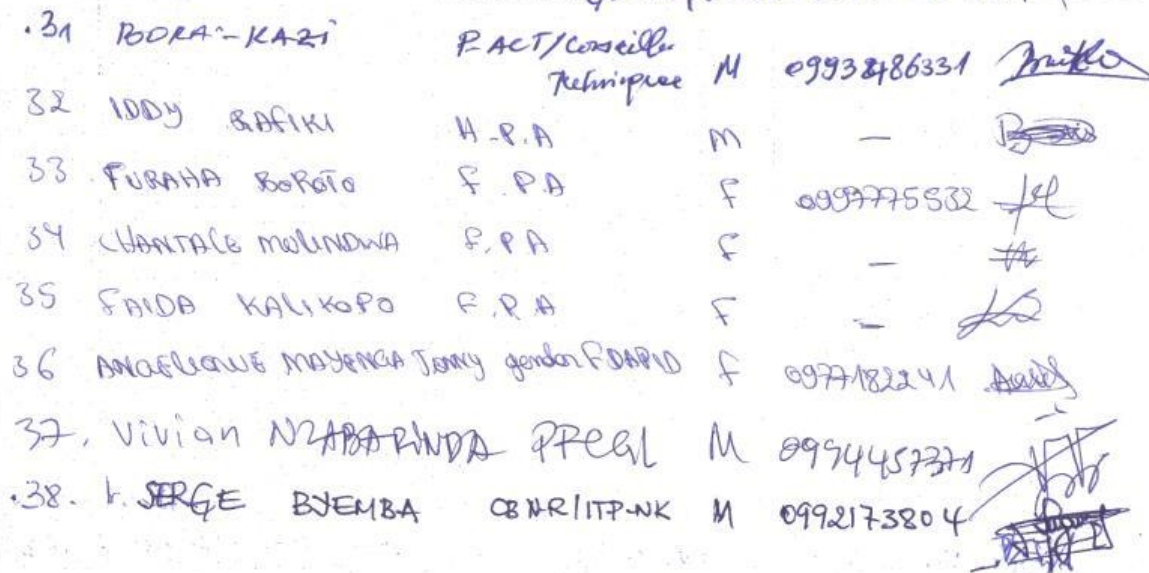 .31 BORA-KAZI P.ACT/Conseiller M 0993486331
Technique
32 IDDY RAFIKI H.P.A M —
33 FURAHA BOROTO F.P.A F 0997775532
34 CHANTALE MULINDWA F.P.A F —
35 FAIDA KALIKOPO F.P.A F —
36 ANGELIQUE MAYENGA Jenny gender FDAPID F 0977182241
37. Vivian NZABARINDA PFCGL M 0994457371
.38. SERGE BYEMBA CBNR/ITP-NK M 0992173804